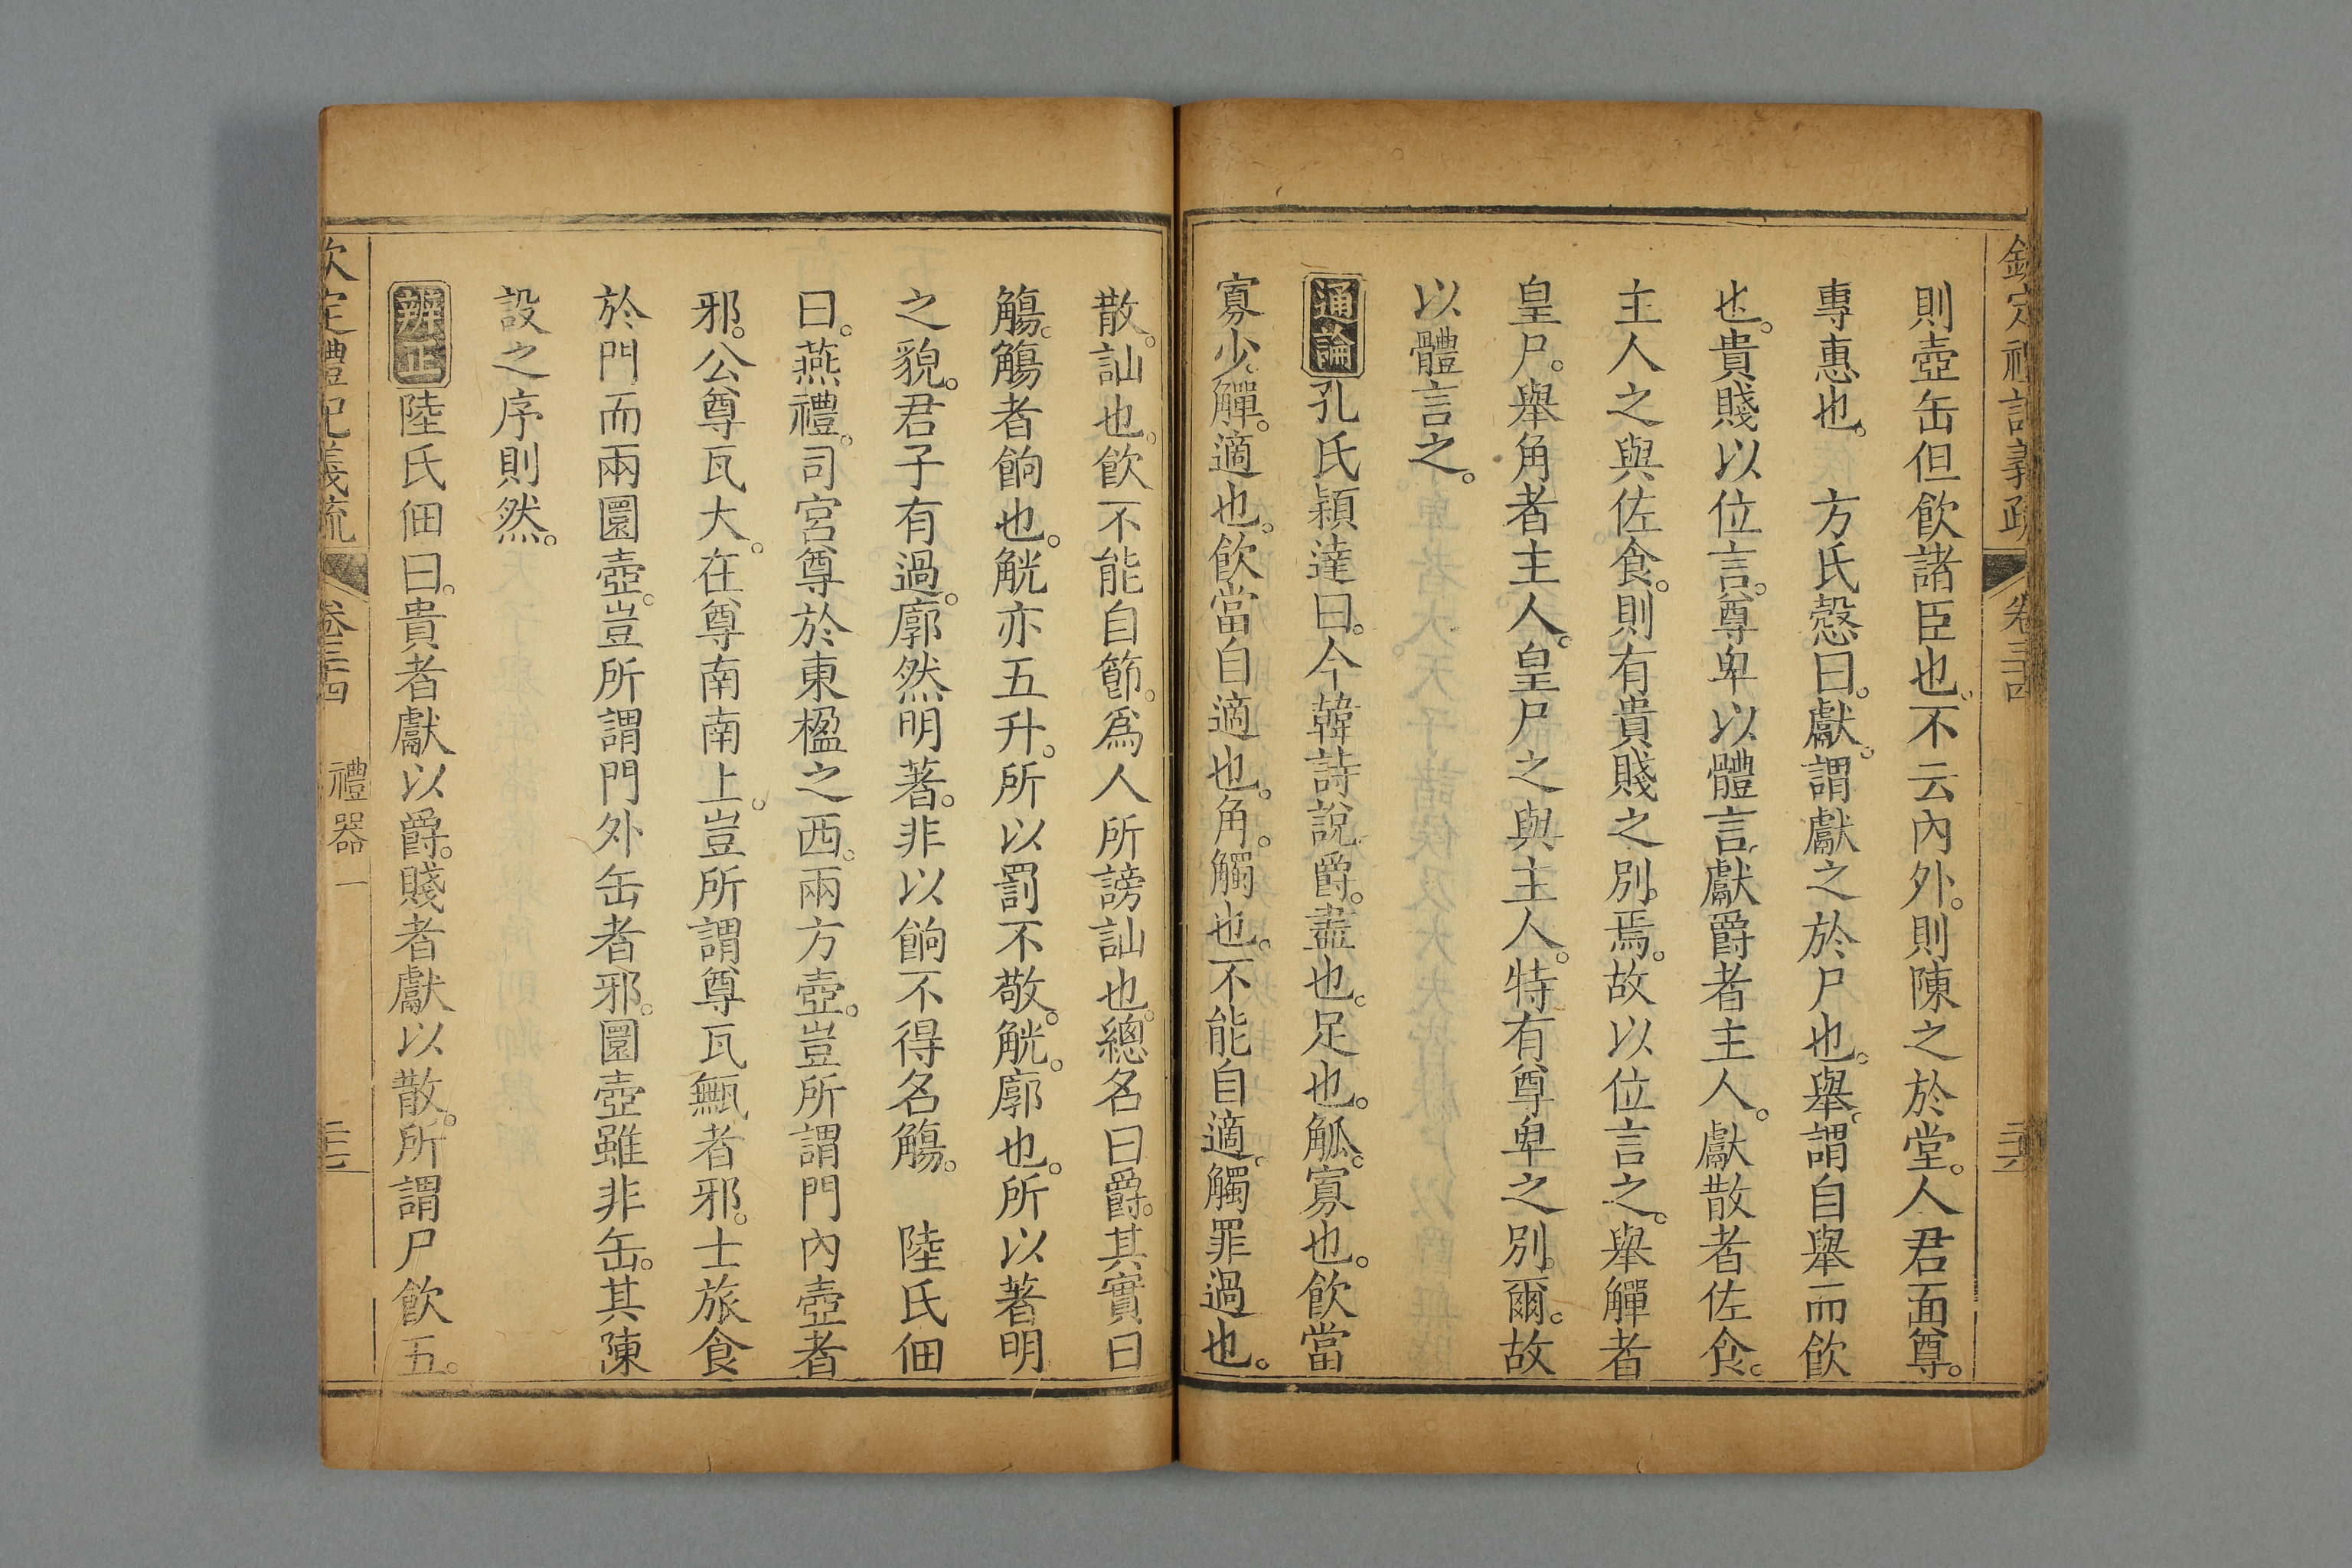 欽定禮記義疏 卷三十四 二十六
則壺缶但飲諸臣也。不云內外。則陳之於堂。人君面尊。
專惠也。 方氏慤曰。獻。謂獻之於尸也。舉。謂自舉而飲
也。貴賤以位言。尊卑以體言。獻爵者主人。獻散者佐食。
主人之與佐食。則有貴賤之別焉。故以位言之。舉觶者
皇尸。舉角者主人。皇尸之與主人。特有尊卑之別爾。故
以體言之。
通論孔氏穎達曰。今韓詩說爵。盡也。足也。觚。寡也。飲當
寡少。觶。適也。飲當自適也。角。觸也。不能自適。觸罪過也。
散。訕也。飲不能自節。爲人所謗訕也。總名曰爵。其實曰
觴。觴者餉也。觥亦五升。所以罰不敬。觥。廓也。所以著明
之貌。君子有過。廓然明著。非以餉不得名觴。 陸氏佃
曰。燕禮。司宮尊於東楹之西。兩方壺。豈所謂門內壺者
邪。公尊瓦大。在尊南南上。豈所謂尊瓦甒者邪。士旅食
於門而兩圜壺。豈所謂門外缶者邪。圜壺雖非缶。其陳
設之序則然。
辨正陸氏佃曰。貴者獻以爵。賤者獻以散。所謂尸飲五。
欽定禮記義疏 卷三十四 禮器一 二十七